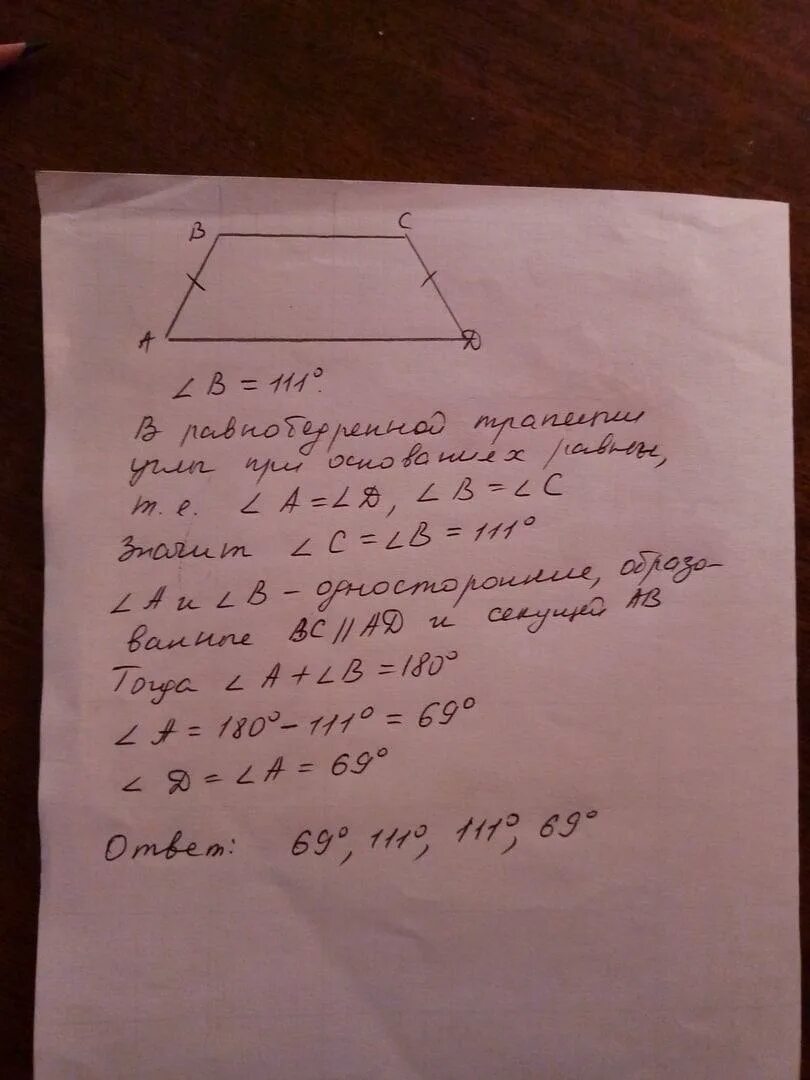 B C
A D
∠B = 111°.
В равнобедренной трапеции
углы при основаниях равны,
т.е. ∠A = ∠D, ∠B = ∠C
Значит ∠C = ∠B = 111°
∠A и ∠B – односторонние, образо-
ванные BC || AD и секущей AB
Тогда ∠A + ∠B = 180°
∠A = 180° – 111° = 69°
∠D = ∠A = 69°
Ответ: 69°, 111°, 111°, 69°